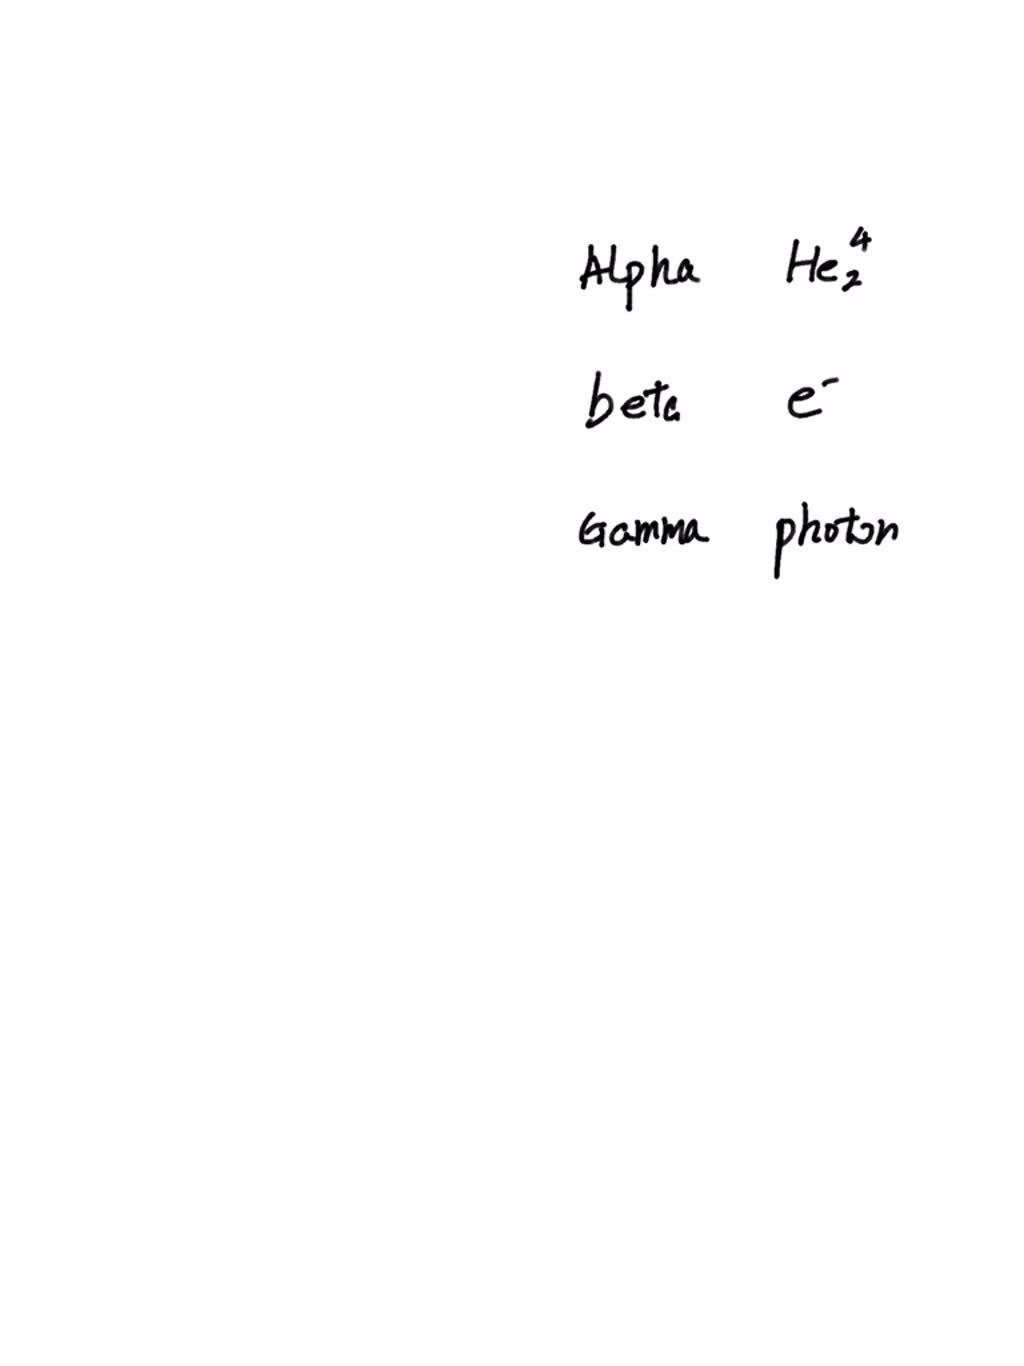 Alpha He₂⁴
beta e⁻
Gamma photon